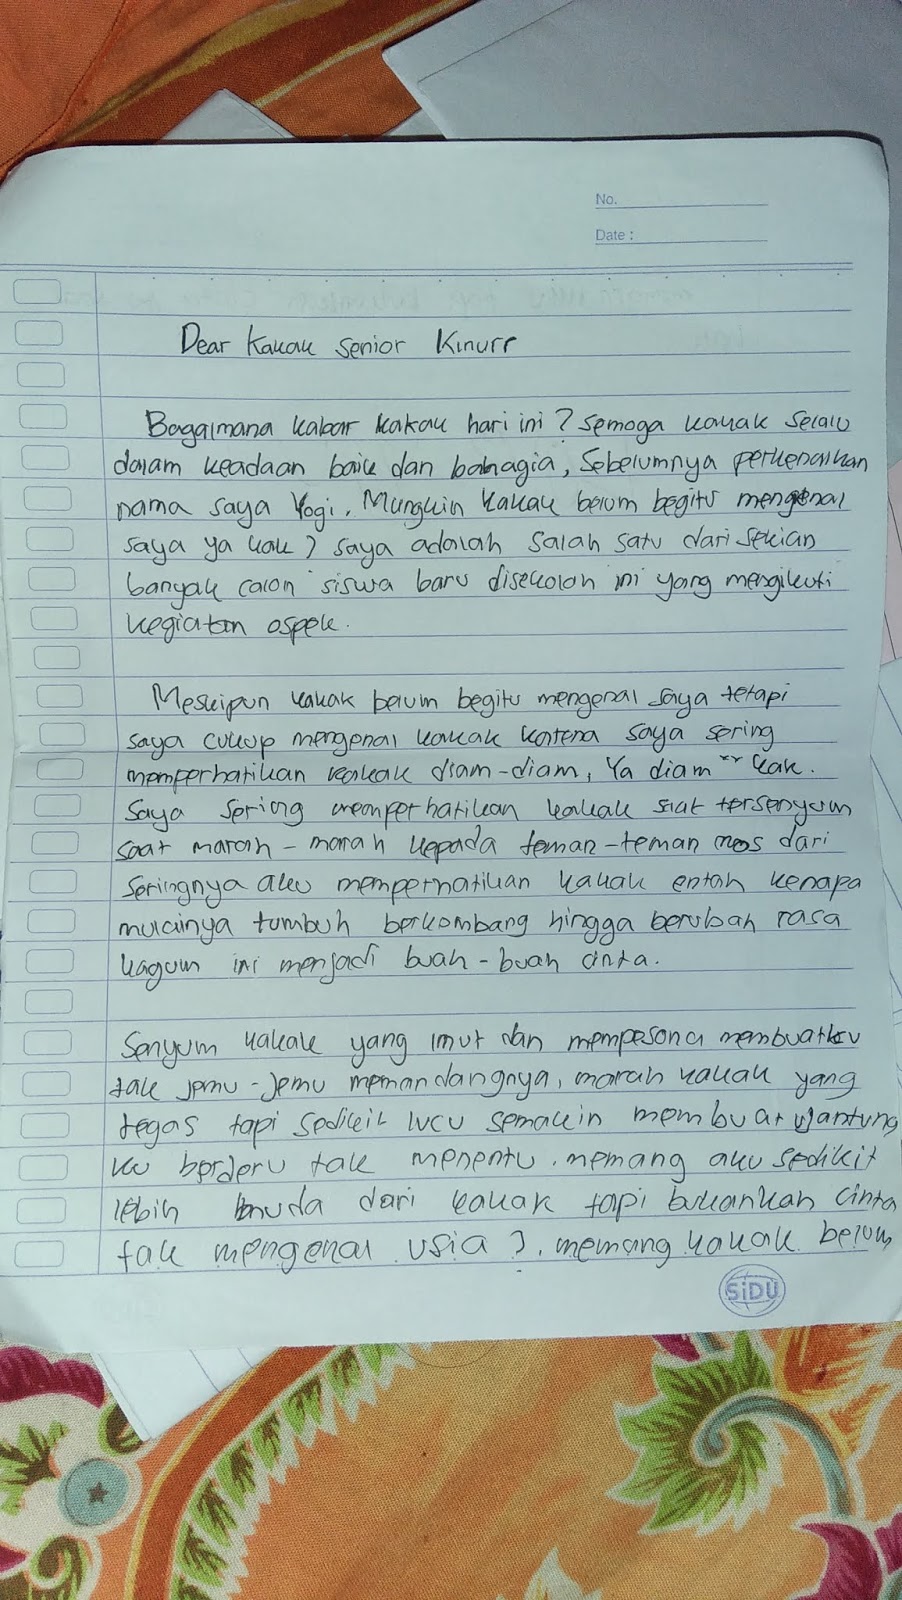 No.
Date :
Dear kakak senior Kinurr
Bagaimana kabar kakak hari ini ? semoga kakak selalu
dalam keadaan baik dan bahagia, sebelumnya perkenalkan
nama saya Yogi, Mungkin kakak belum begitu mengenal
saya ya kak ? saya adalah salah satu dari sekian
banyak calon siswa baru disekolah ini yang mengikuti
kegiatan ospek.
Meskipun kakak belum begitu mengenal saya tetapi
saya cukup mengenal kakak karena saya sering
memperhatikan kakak diam-diam, Ya diam" kak.
Saya sering memperhatikan kakak saat tersenyum
saat marah-marah kepada teman-teman mos dari
seringnya aku memperhatikan kakak entah kenapa
mulainya tumbuh berkembang hingga berubah rasa
kagum ini menjadi buah-buah cinta.
Senyum kakak yang imut dan mempesona membuatku
tak jemu-jemu memandangnya, marah kakak yang
tegas tapi sedikit lucu semakin membuat jantung
ku berderu tak menentu. memang aku sedikit
lebih muda dari kakak tapi bukankah cinta
tak mengenal usia ?. memang kakak belum
SiDU